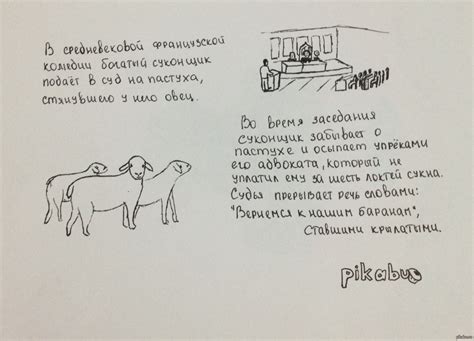 В средневековой французской
комедии богатый суконщик
подаёт в суд на пастуха,
стянувшего у него овец.
Во время заседания
суконщик забывает о
пастухе и осыпает упрёками
его адвоката, который не
уплатил ему за шесть локтей сукна.
Судья прерывает речь словами:
"Вернемся к нашим баранам",
ставшими крылатыми.
pikabu